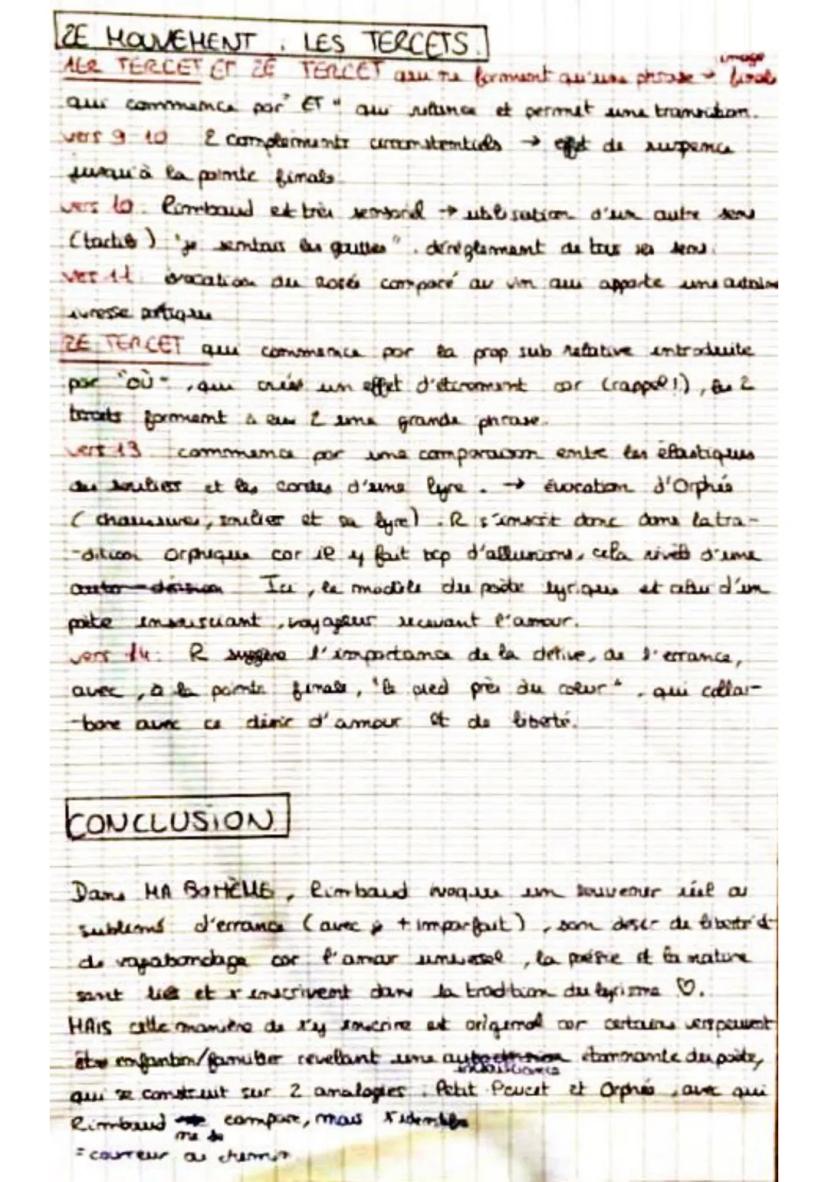 2E MOUVEMENT : LES TERCETS.
image
1ER TERCET ET 2E TERCET qui ne forment qu'une phrase → finale
qui commence par "ET" qui relance et permet une transition.
vers 9-10 2 compléments circonstentiels → effet de suspence
jusqu'à la pointe finale.
vers 10 : Rimbaud est très sensoriel → utilisation d'un autre sens
(tactile) "je sentais les gouttes". déréglement de tous ses sens.
vers 11 : évocation du rosée comparé au vin qui apporte une
ivresse poétique
2E TERCET qui commence par la prop sub relative introduite
par "où", qui crée un effet d'étirement car (rappel!), les 2
tercets forment à eux 2 une grande phrase.
vers 13 commence par une comparaison entre les élastiques
du soulier et les cordes d'une lyre. → évocation d'Orphée
(chaussures, soulier et sa lyre). R s'inscrit donc dans la tra-
-dition orphique car il y fait bcp d'allusions, cela révèle d'une
auto-dérision Ici, le modèle du poète lyrique est celui d'un
poète insouciant, voyageur recevant l'amour.
vers 14 : R suggère l'importance de la dérive, de l'errance,
avec, à la pointe finale, "le pied près du coeur", qui colla-
-bore avec ce désir d'amour et de liberté.
CONCLUSION
Dans MA BOHÈME, Rimbaud évoque un souvenir réel ou
sublimé d'errance (avec je + imparfait), son désir de liberté et
de vagabondage car l'amour universel, la poésie et la nature
sont liés et s'inscrivent dans la tradition du lyrisme ♡.
MAIS cette manière de s'y inscrire est original car certains vers peuvent
être enfantin/familier révelant une autodérision étonnante du poète,
insouciance
qui se construit sur 2 analogies : Petit Poucet et Orphée, avec qui
Rimbaud compare, mais s'identifie
me se
= coureur de chemin